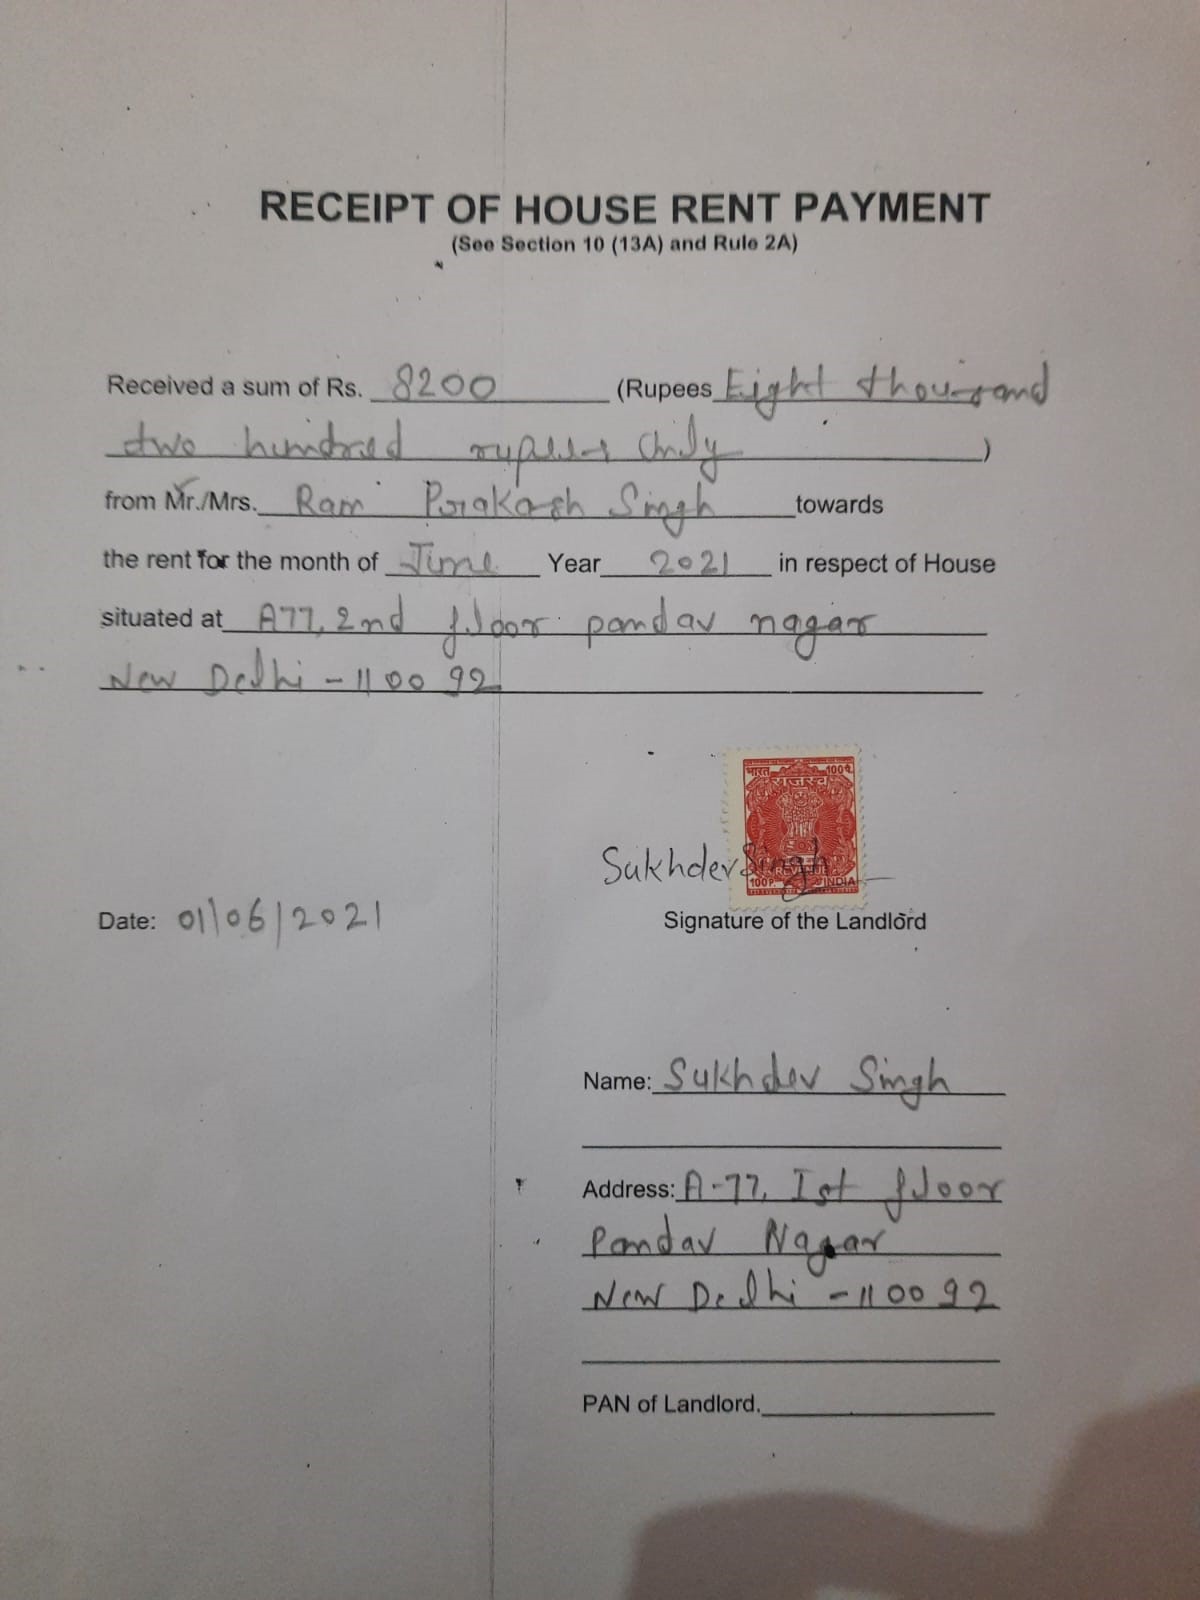 RECEIPT OF HOUSE RENT PAYMENT
(See Section 10 (13A) and Rule 2A)
Received a sum of Rs. 8200 (Rupees Eight thousand
two hundred rupees Only )
from Mr./Mrs. Ram Prakash Singh towards
the rent for the month of June Year 2021 in respect of House
situated at A77, 2nd floor pandav nagar
New Delhi - 110092
भारत 100 पै.
राजस्व
Sukhdev Singh
REVENUE
100 P. INDIA
Date: 01/06/2021 Signature of the Landlord
Name: Sukhdev Singh
Address: A-77, Ist floor
Pandav Nagar
New Delhi - 110092
PAN of Landlord.